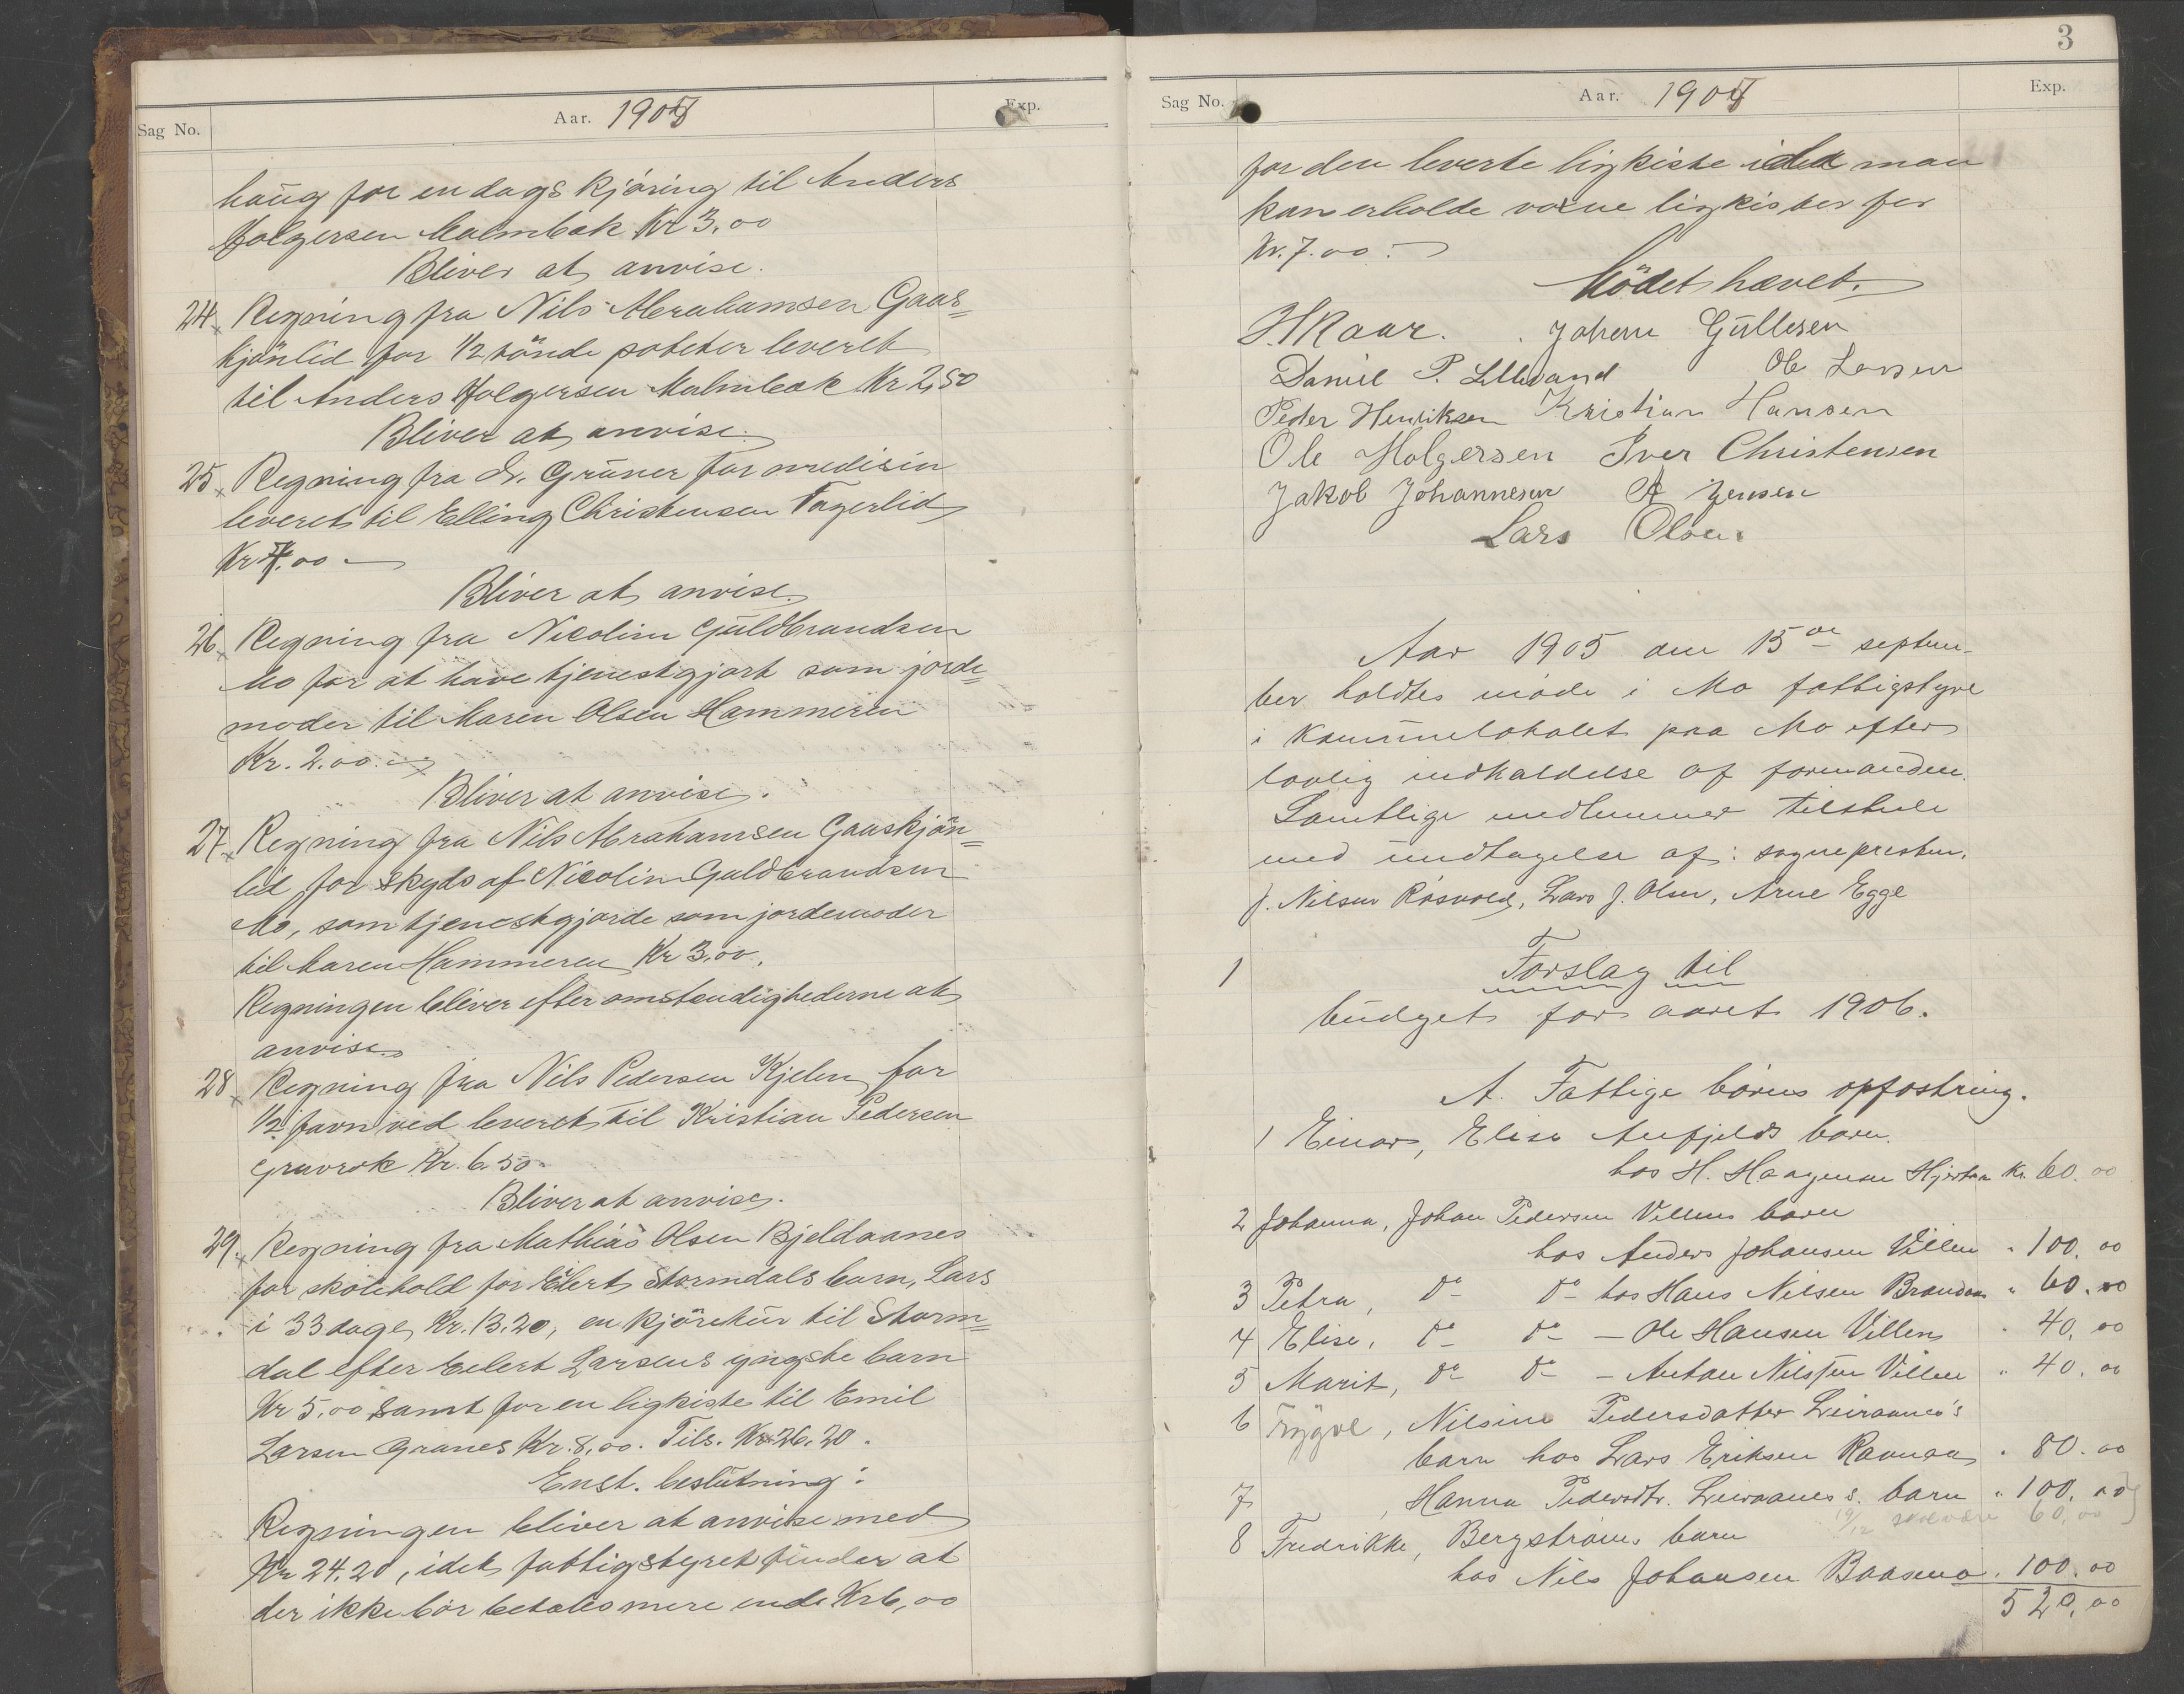 Sag No.
Aar. 1905
Exp.
haug for en dags kjöring til Anders
Holgersen Malmbak Kr 3,00
Bliver at anvise.
24 Regning fra Nils Abrahamsen Gaas=
kjönlid for 1/2 tönde poteter leveret
til Anders Holgersen Malmbak Kr 2,50
Bliver at anvise.
25 Regning fra dr. Grüner for medisin
leveret til Elling Christensen Fagerlid
Kr 7,00
Bliver at anvise.
26 Regning fra Nicoline Guldbrandsen
Mo for at have tjenestgjort som jorde=
moder til Maren Olsen Hammeren
Kr. 2.00.
Bliver at anvise.
27 Regning fra Nils Abrahamsen Gaaskjön=
lid for skyds af Nicolin Guldbrandsen
Mo, som tjenestgjorde som jordemoder
til Maren Hammeren Kr 3,00.
Regningen bliver efter omstendighederne at
anvise.
28 Regning fra Nils Pedersen Kjelen for
1/2 favn ved leveret til Kristian Pedersen
Gruvrok Kr. 6.50.
Bliver at anvise.
29. Regning fra Mathias Olsen Bjeldaanes
for skolehold for Eilert Stormdals barn, Lars
i 33 dage, Kr. 13.20, en kjöretur til Storm=
dal efter Eilert Larsens yngste barn
Kr 5,00 samt for en ligkiste til Emil
Larsen Granes Kr. 8,00. Tils. Kr 26.20.
Enst. beslutning:
Regningen bliver at anvise med
Kr 24.20, idet fattigstyret finder at
der ikke bör betales mere end Kr 6,00
3
Sag No.
Aar. 1905
Exp.
for den leverte ligkiste idet man
kan erholde voxne ligkister for
Kr. 7.00.
Mödet hævet.
H Maar. Johan Gullesen
Daniel P. Lillevand Ole Larsen
Peder Henriksen Kristian Hansen
Ole Holgersen Iver Christensen
Jakob Johannesen A Jensen
Lars Olsen.
Aar 1905 den 15de septem-
ber holdtes möde i Mo fattigstyre
i kommunelokalet paa Mo efter
lovlig indkaldelse af formanden.
Samtlige medlemmer tilstede
med undtagelse af: sognepresten,
J. Nilsen Rösvold, Lars J. Olsen, Arne Egge
1 Forslag til
budget for aaret 1906.
A. Fattige börns opfostring.
1 Einar, Elise Aufjelds barn.
hos H. Haagensen Hjertaa Kr. 60.00
2 Johanna, Johan Pedersen Villens barn
hos Anders Johansen Villen " 100.00
3 Petra, do do hos Hans Nilsen Brandaas " 60.00
4 Elise, do do — Ole Hansen Villen " 40.00
5 Marit, do do — Anton Nilssen Villen " 40.00
6 Trygve, Nilsine Pedersdatter Leiraanes's
barn hos Lars Eriksen Ravnaa " 80.00
7 , Hanna Pedersdtr. Leiraanes s. barn " 100.00
19/12 60,00
8 Fredrikke, Bergströms barn
hos Nils Johansen Baasmo " 100.00
520,00